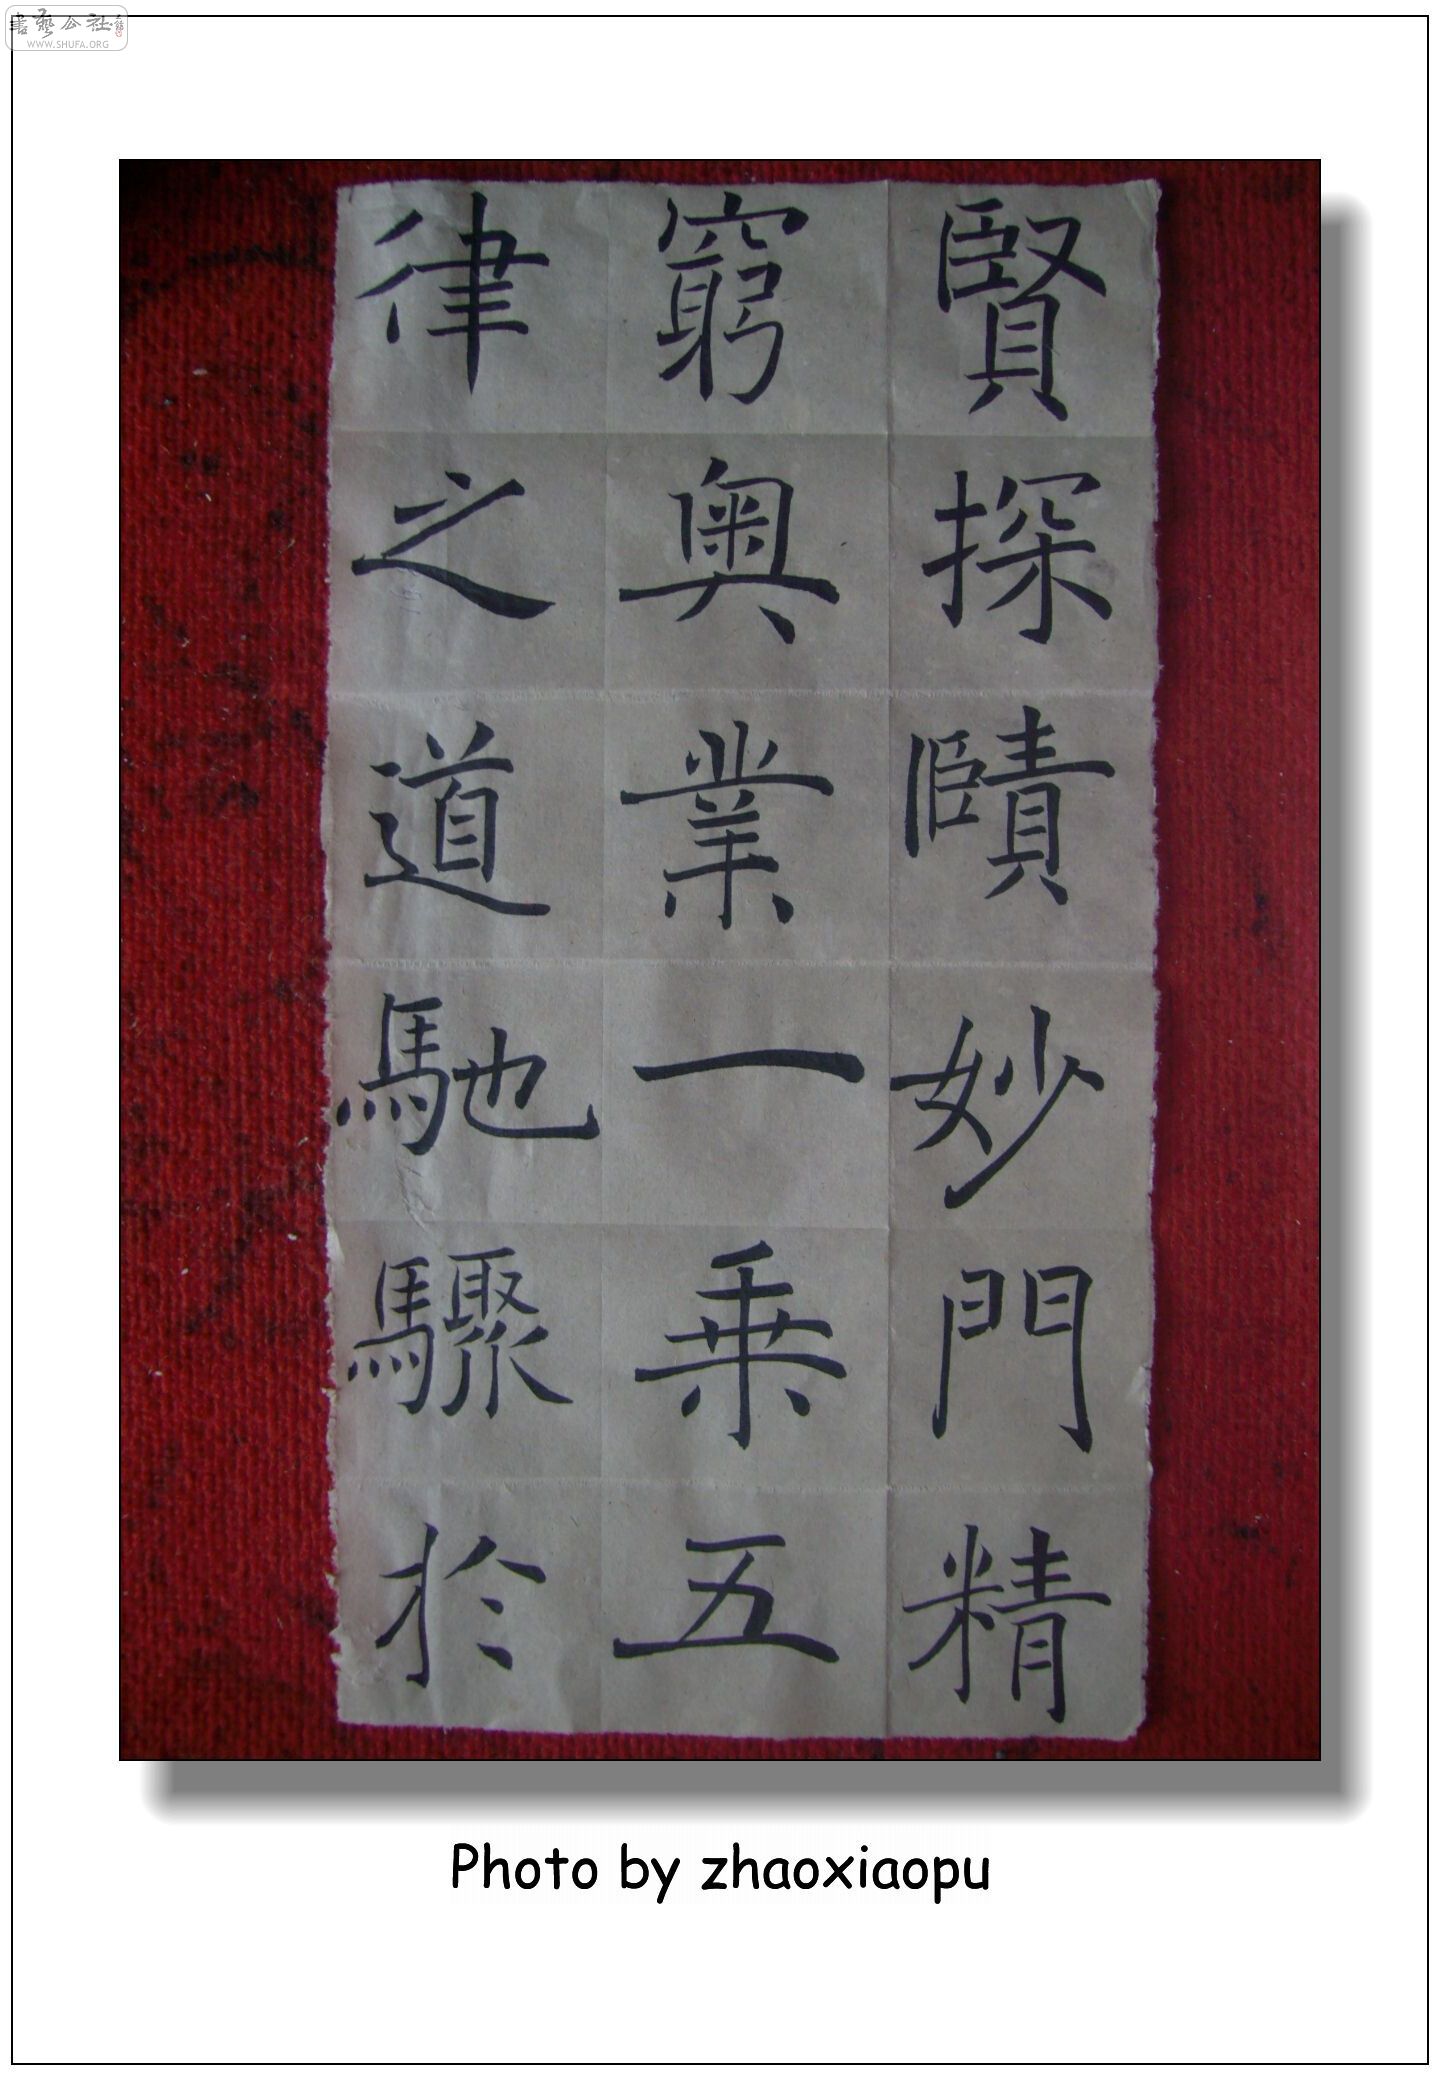 書藝公社
WWW.SHUFA.ORG
賢探賾妙門精
窮奥業一乗五
律之道馳驟於
Photo by zhaoxiaopu